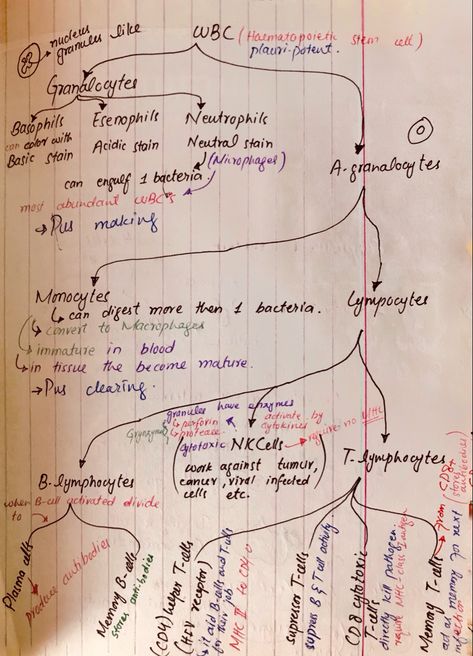 WBC (Haematopoietic stem cell)
plauri-potent.
nucleus
granules like
Granalocytes
Basophils
can color with
Basic stain
Esenophils
Acidic stain
Neutrophils
Neutral stain
(Microphages)
can engulf 1 bacteria.
most abundant WBC's
→ Pus making
A-granalocytes
Monocytes
can digest more then 1 bacteria.
convert to Macrophages
immature in blood
in tissue the become mature.
→ Pus clearing.
Lympocytes
granules have enzymes
Grynzymes
perforin
protease
activate by
cytokines
require no MHC
cytotoxic NK Cells
(work against tumur,
cancer, viral infected
cells etc.)
B-lymphocytes
when B-cell activated divide
to
Plasma cells
produce antibodies
Memory B-cells
stores antibodies
T-lymphocytes
(CD4) helper T-cells
(HIV receptor)
it aid B-cells and T-cells
for their job
MHC II to CD4
supressor T-cells
suppress B & T cell activity.
CD8 cytotoxic
T-cells
directly kill pathogen
require MHC-class I antigen
Memory T-cells
from (CD8+
store
antibodies)
act as memory for next
infection